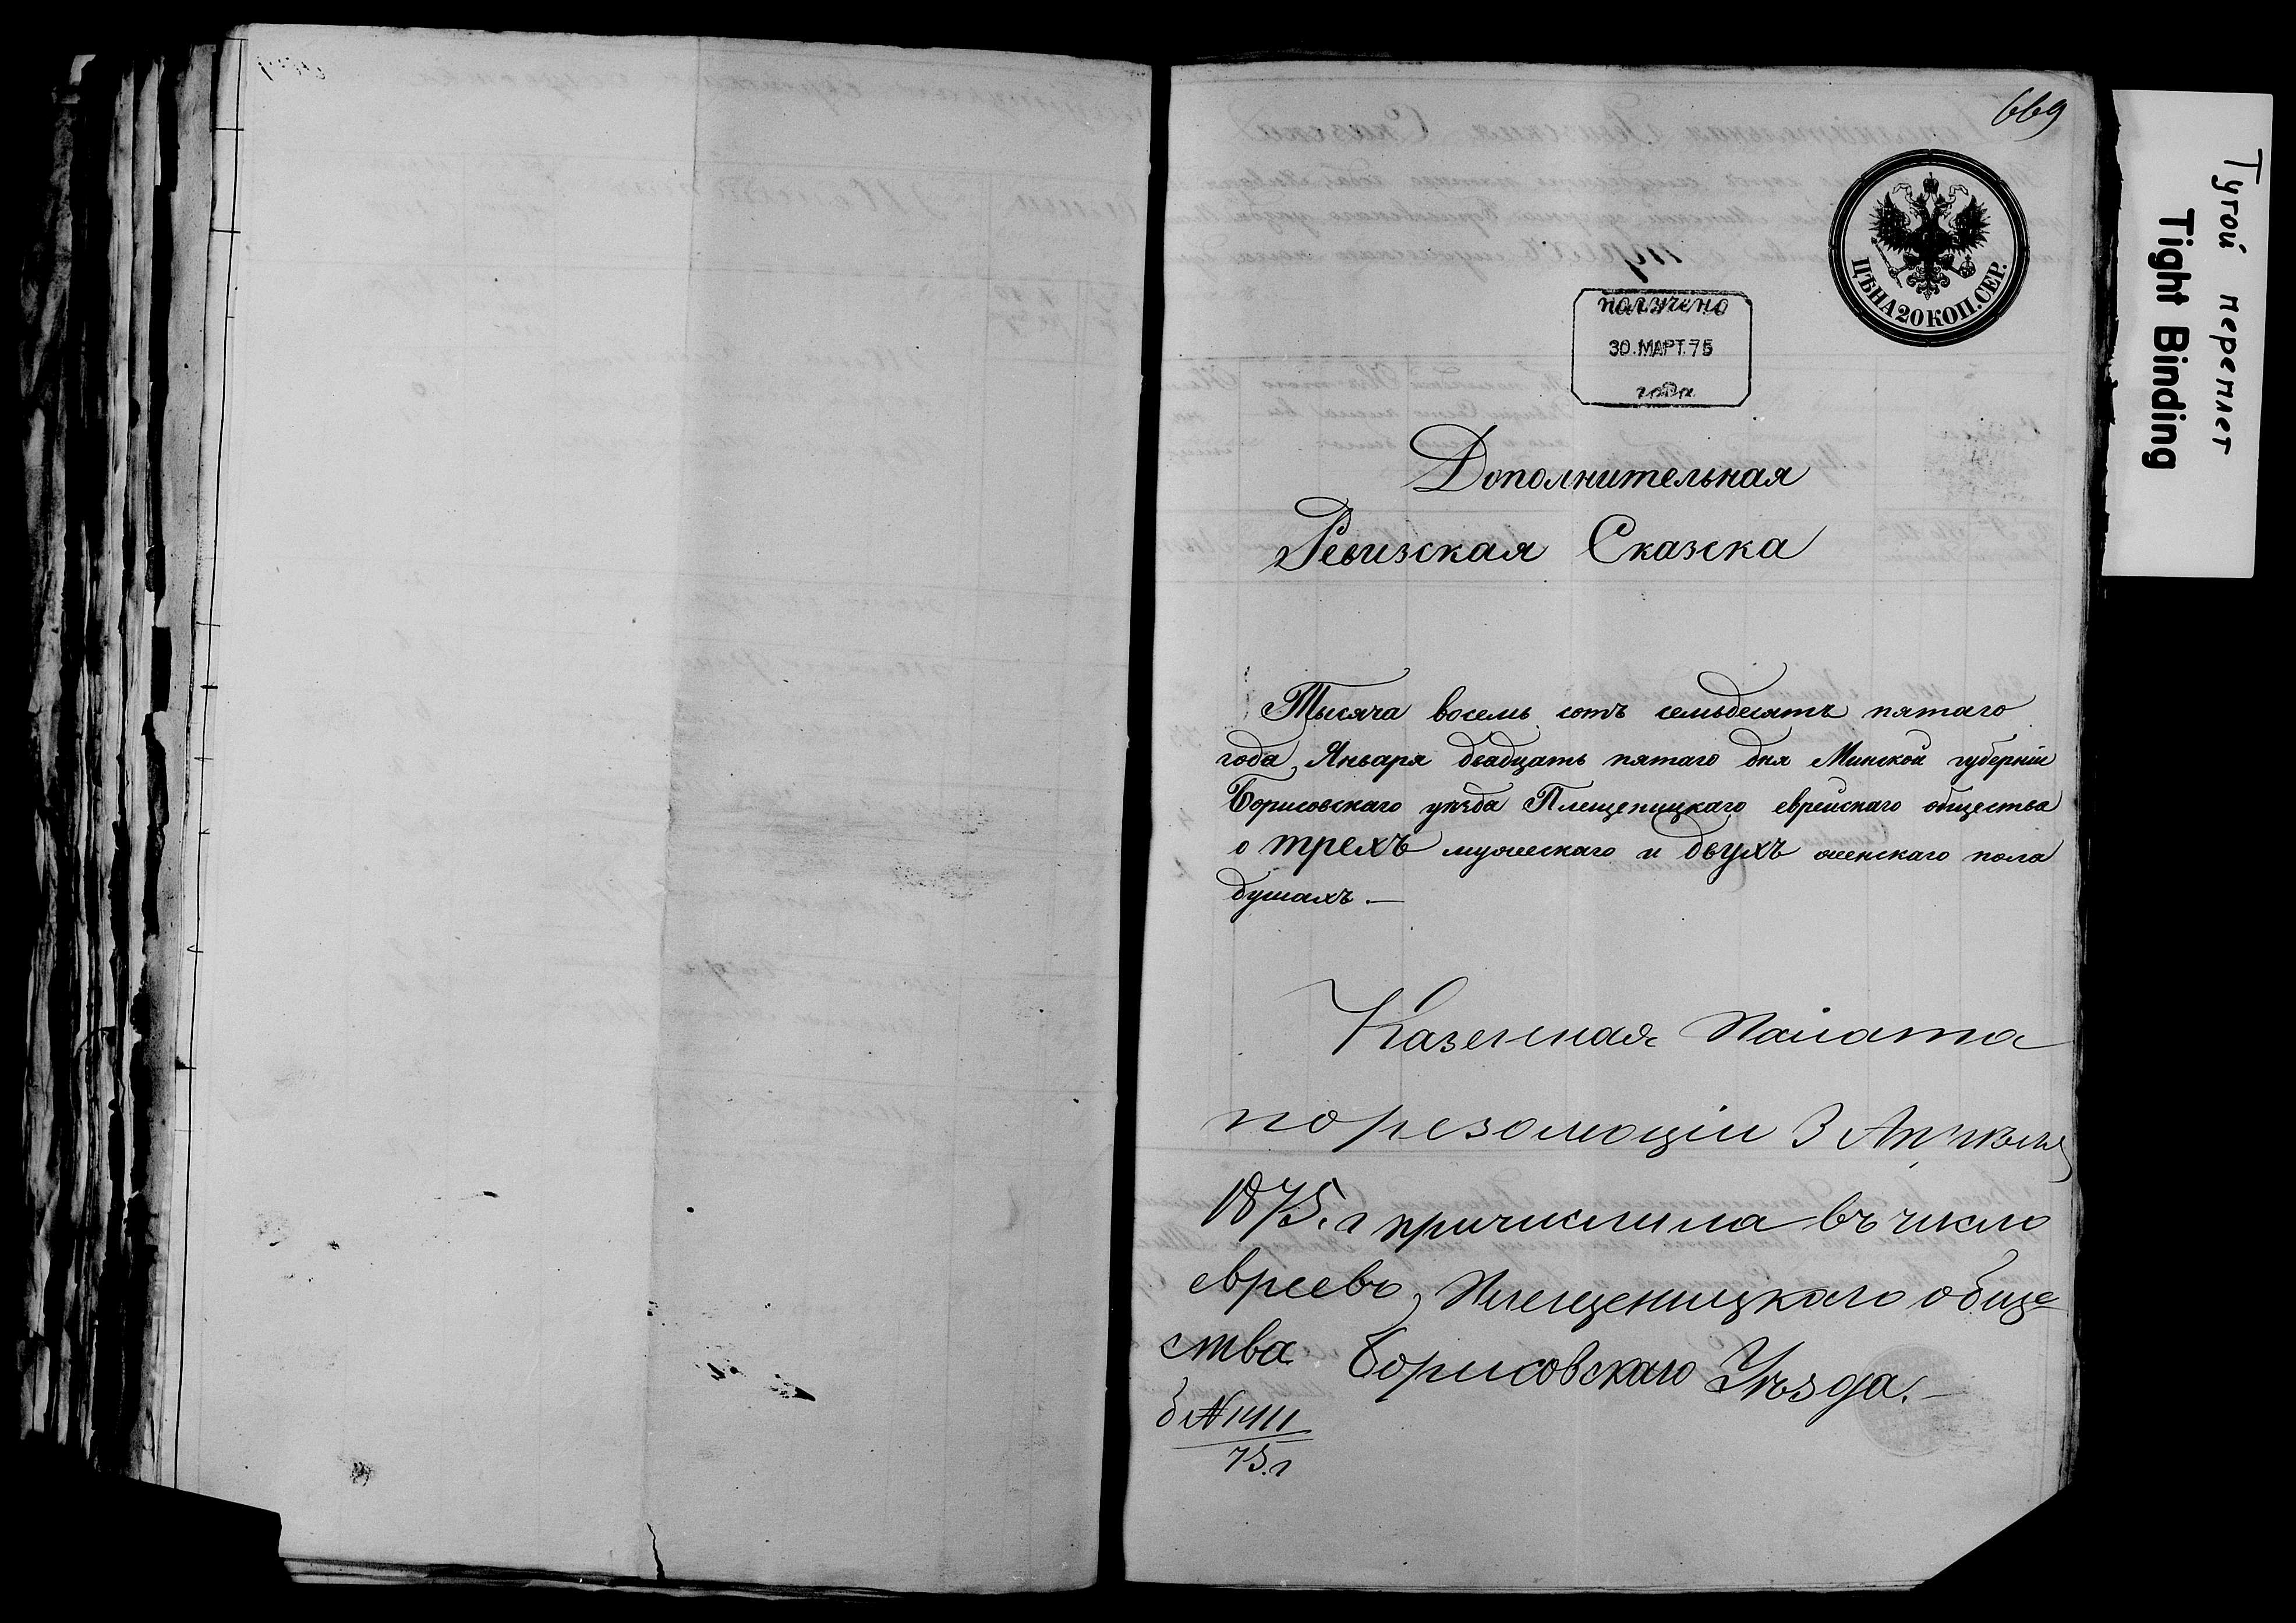 669
ЦѢНА 20 КОП. СЕР.
получено
30. МАРТ. 75
года
Дополнительная
Ревизская Сказка
Тысяча восемь сотъ семьдесятъ пятаго
года, Января двадцать пятаго дня Минской губерніи
Борисовскаго уѣзда Плещеницкаго еврейскаго общества
о трехъ мужескаго и двухъ женскаго пола
душахъ. —
Казенная Палата
по резолюціи 3 Апрѣля
1875. г причислила въ число
евреевъ, Плещеницкаго обще
ства Борисовскаго Уѣзда. —
д № 1411
75. г
Тугой переплет
Tight Binding